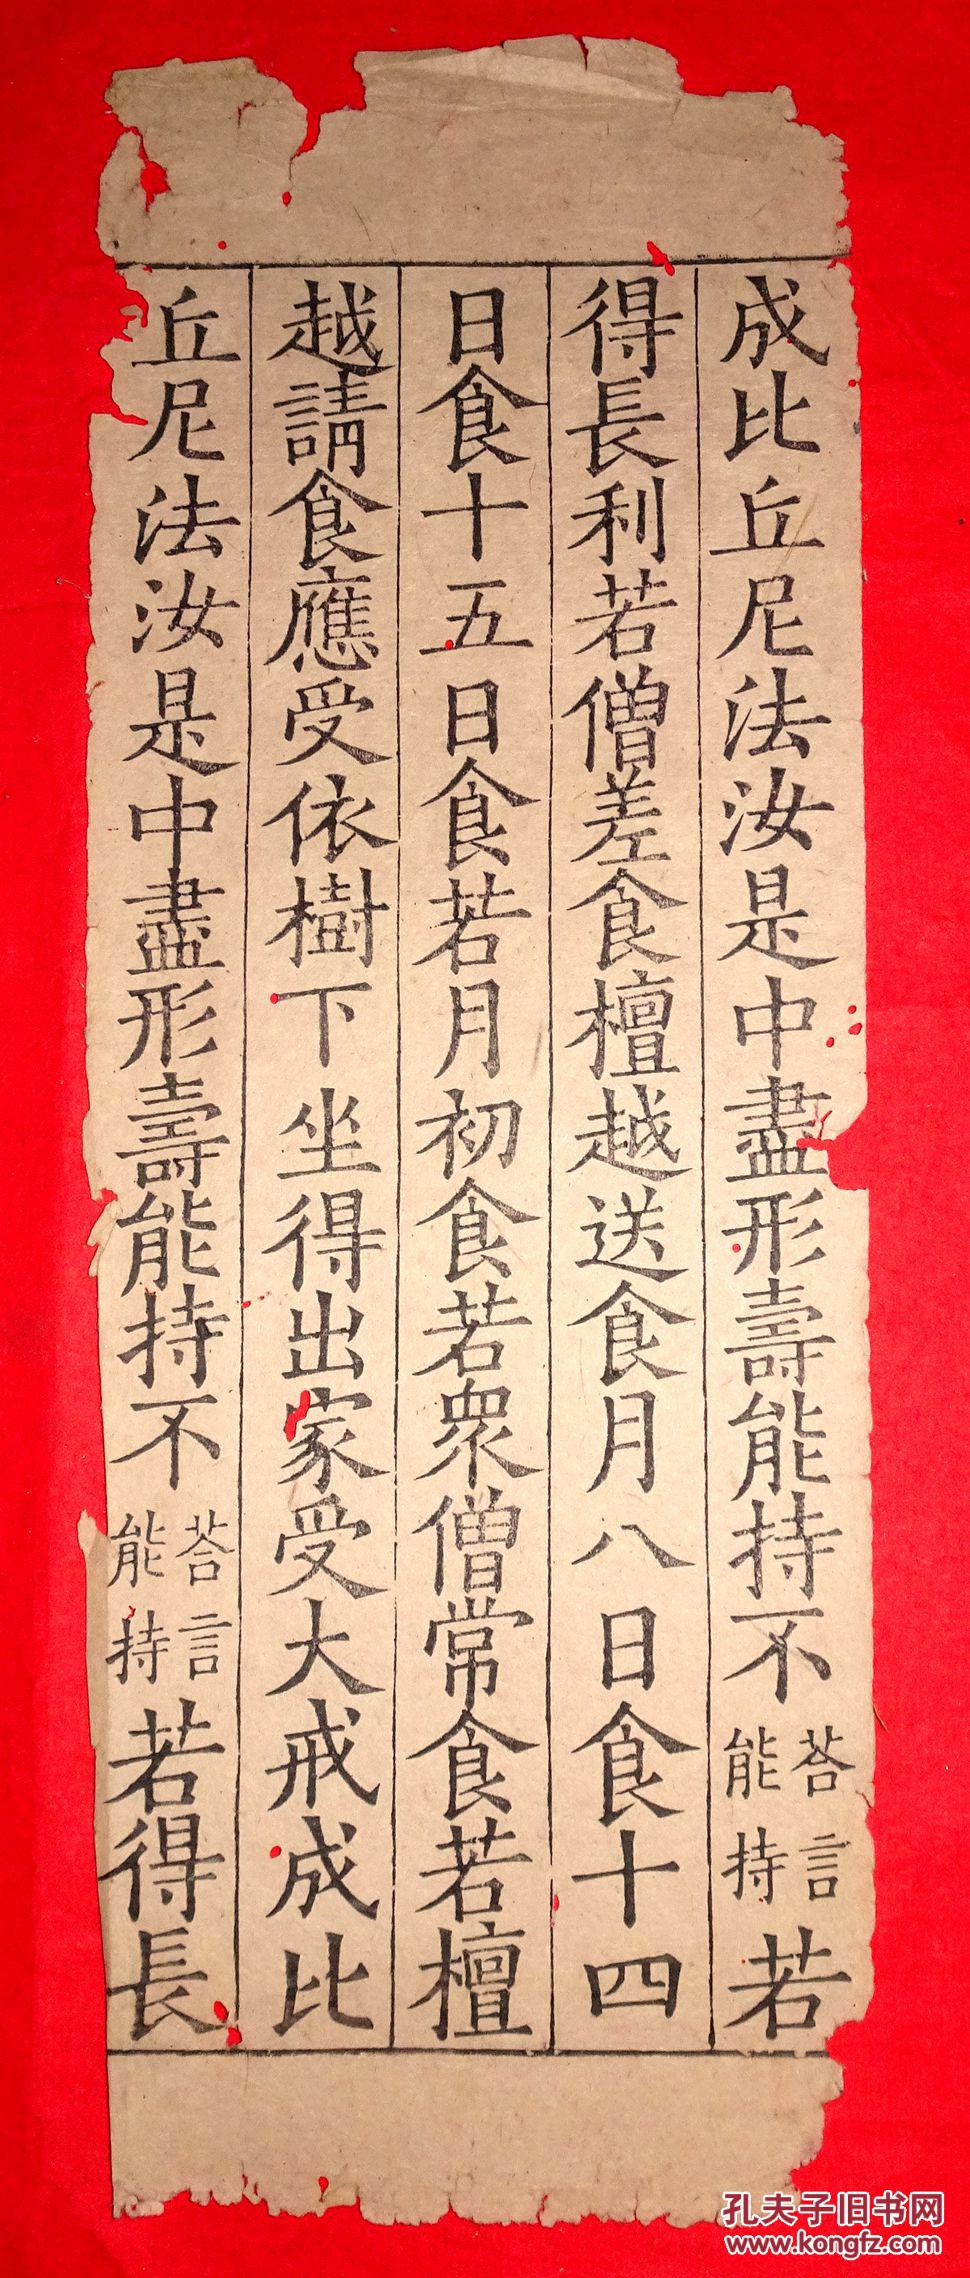 成比丘尼法汝是中盡形壽能持不荅言能持若
得長利若僧差食檀越送食月八日食十四
日食十五日食若月初食若眾僧常食若檀
越請食應受依樹下坐得出家受大戒成比
丘尼法汝是中盡形壽能持不荅言能持若得長
孔夫子旧书网
www.kongfz.com